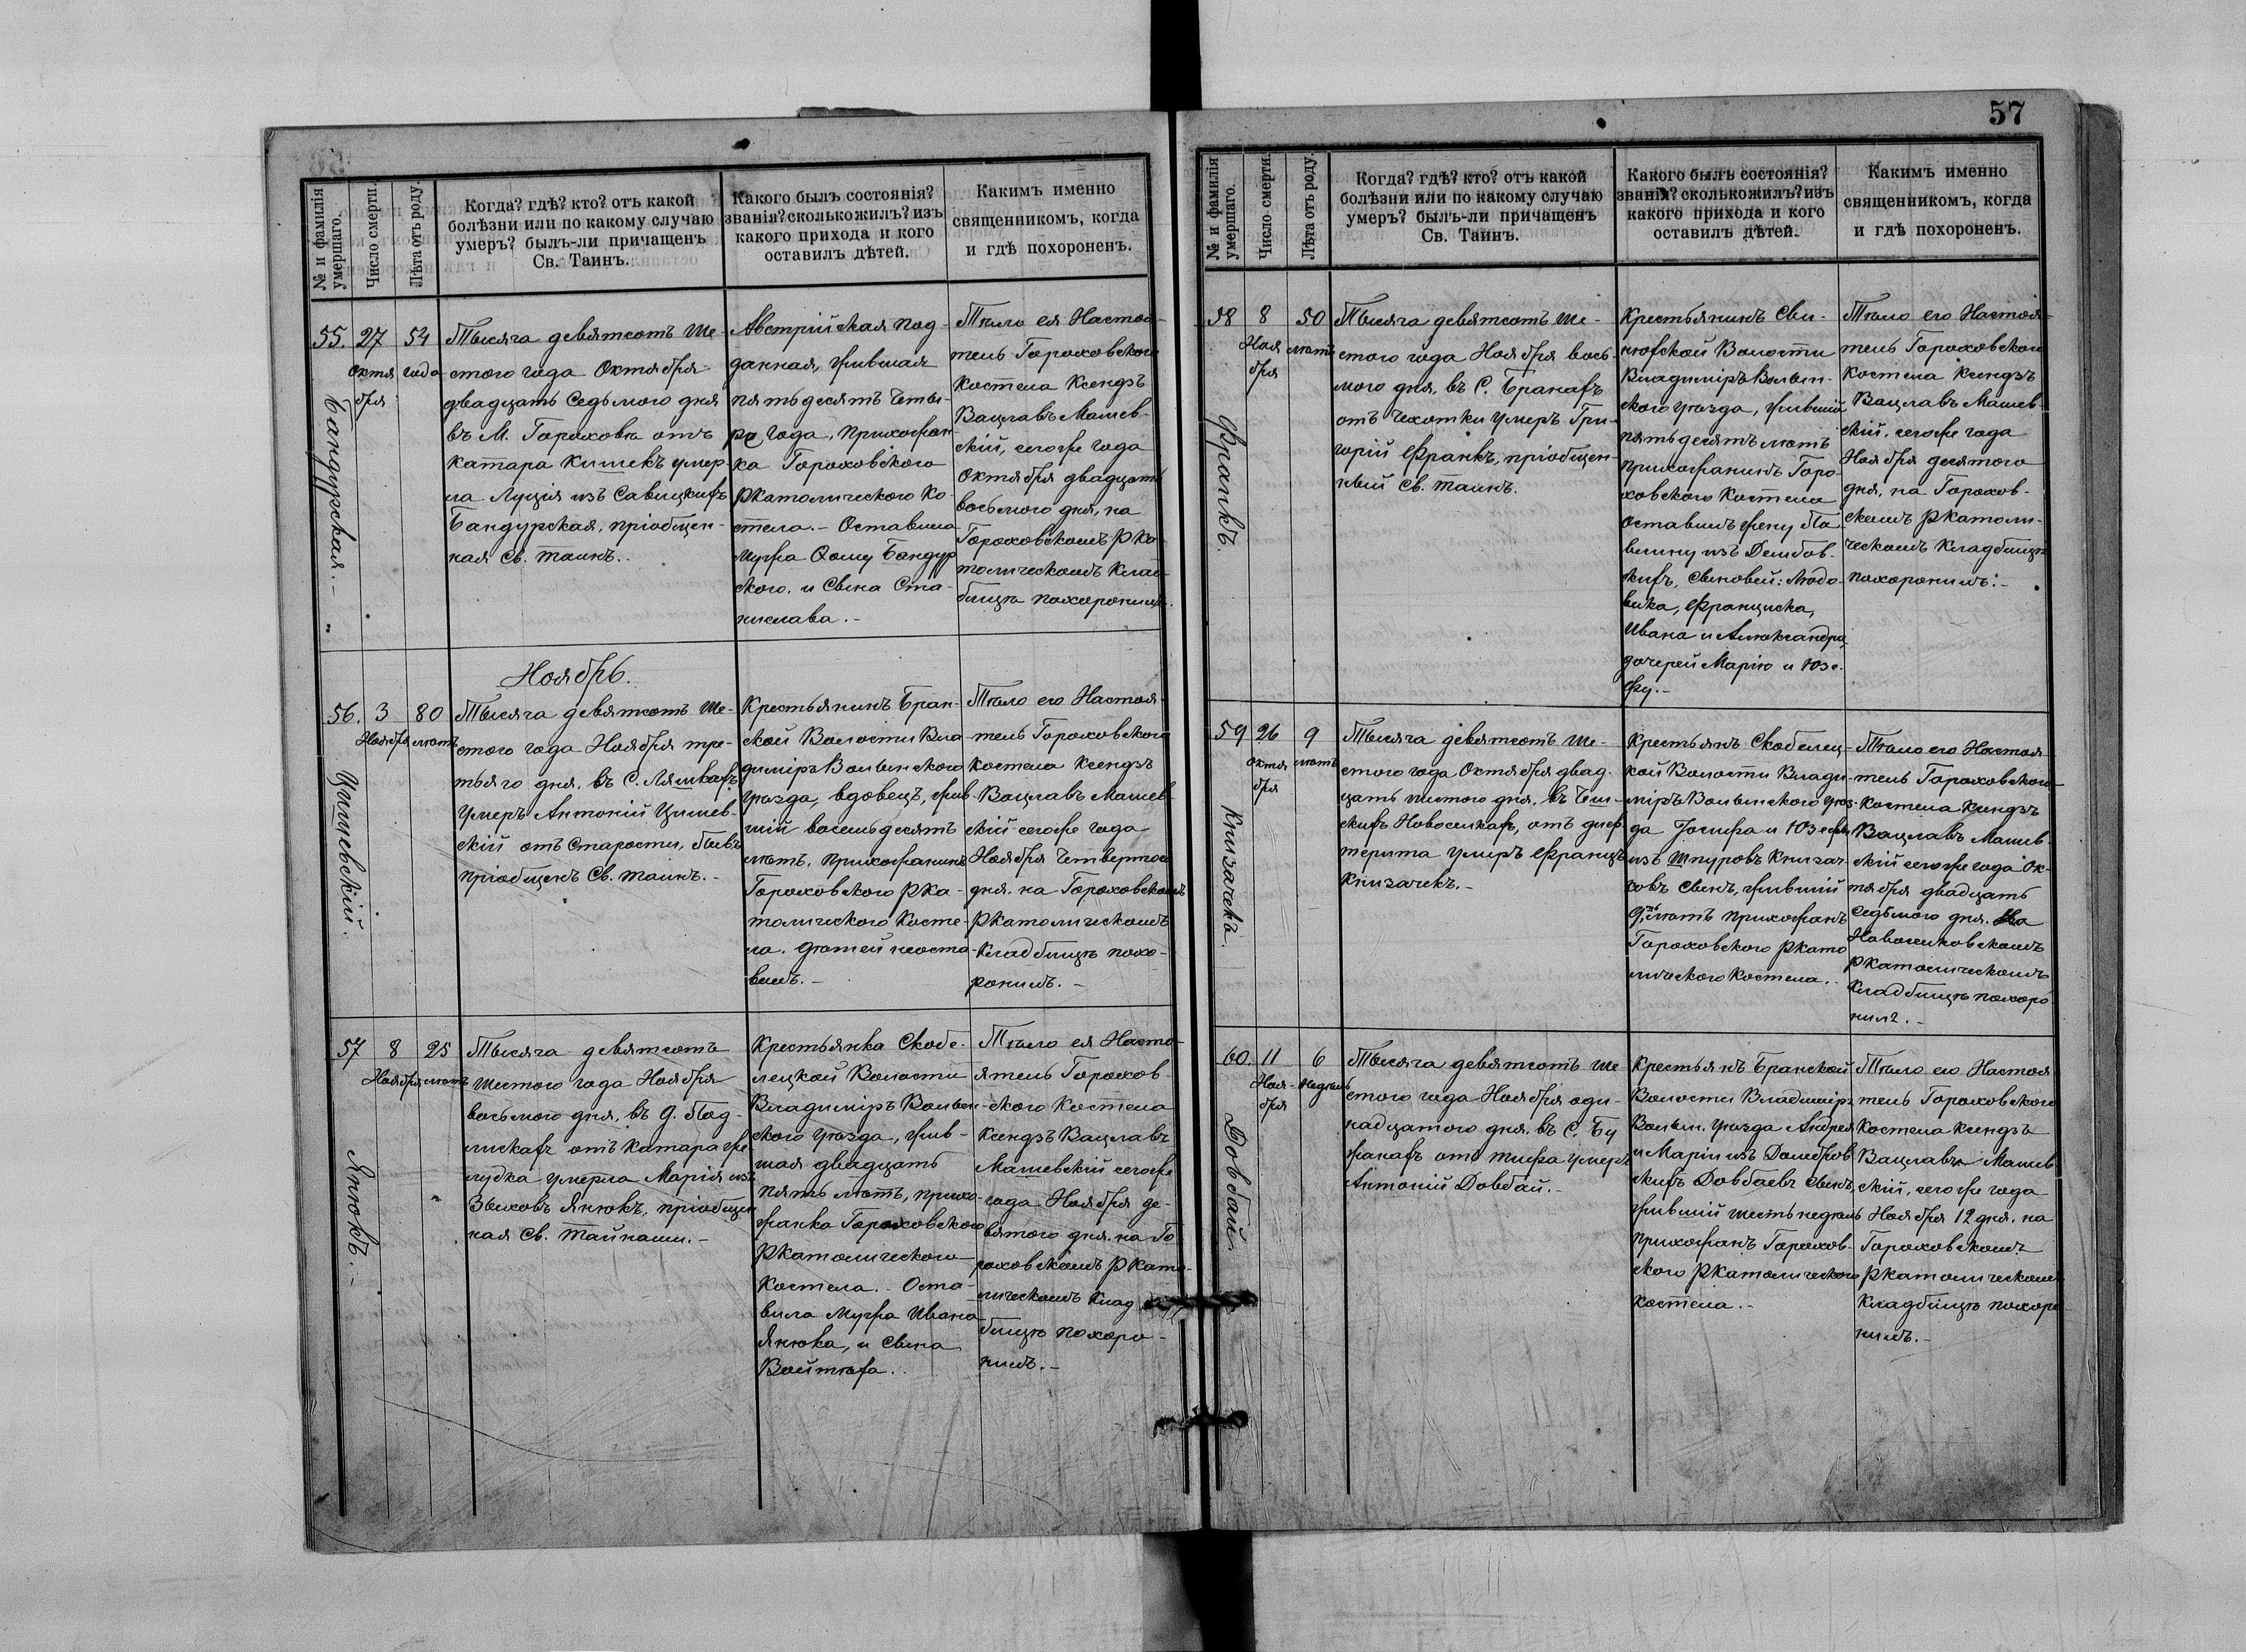 57
№ и фамилія умершаго.
Число смерти.
Лѣта отъ роду.
Когда? гдѣ? кто? отъ какой
болѣзни или по какому случаю
умеръ? былъ-ли причащенъ
Св. Таинъ.
Какого былъ состоянія?
званія? сколько жилъ? изъ
какого прихода и кого
оставилъ дѣтей.
Какимъ именно
священникомъ, когда
и гдѣ похороненъ.
55.
Бандурская.-
27
Октя
бря
54
года
Тысяча девятьсотъ Ше-
стого года Октября
двадцать Седьмого дня
въ М. Гороховѣ отъ
катара кишекъ умер-
ла Луція изъ Савицкихъ
Бандурская, пріобщен-
ная Св. таинъ..
Австрійская под-
данная, жившая
пятьдесятъ четы-
ре года, прихожан-
ка Гороховского
Ркатолического Ко-
стела.- Оставила
мужа Ѳому Бандур
ского, и Сына Ста-
нислава.-
Тѣло ея Настоя-
тель Гороховского
Костела Ксендзъ
Вацлавъ Машев-
скій, сегоже года
Октября двадцать
восьмого дня, на
Гороховскомъ Рка-
толическомъ клад-
бищѣ похоронилъ.
Ноябрь.
56.
Цишевскій.
3
Ноября
80
лѣтъ
Тысяча девятьсотъ Ше-
стого года Ноября тре-
тьяго дня, въ С. Ляшкахъ
умеръ Антоній Цишев-
скій отъ старости, бывъ
пріобщенъ Св. таинъ.-
Крестьянинъ Бран-
ской Волости Вла-
диміръ Волынского
уѣзда, вдовецъ, жив-
шій восемьдесятъ
лѣтъ, прихожанинъ
Гороховского Рка-
толического Косте-
ла. дѣтей неоста-
вилъ.-
Тѣло его Настоя-
тель Гороховского
костела Ксендзъ
Вацлавъ Машев-
скій сегоже года
Ноября Четвертого
дня. на Гороховскомъ
Ркатолическомъ
Кладбищѣ похо-
ронилъ.-
57
Янюкъ.-
8
Ноября
25
лѣтъ
Тысяча девятьсотъ
шестого года Ноября
восьмого дня, въ д. Под-
лискахъ отъ катара же-
лудка умерла Марія изъ
Зыковъ Янюкъ, пріобщен
ная Св. Тайнами.-
Крестьянка Скобе-
лецкой Волости
Владиміръ Волын-
ского уѣзда, жив-
шая двадцать
пять лѣтъ, прихо-
жанка Гороховского
Ркатолического
Костела.- Оста-
вила мужа Ивана
Янюка, и Сына
Войтѣха..
Тѣло ея Насто-
ятель Горохов-
ского Костела
Ксендзъ Вацлавъ
Машевскій сегоже
года Ноября де-
вятого дня. на Го
роховскомъ Ркато-
лическомъ Клад
бищѣ похоро-
нилъ.-
№ и фамилія умершаго.
Число смерти.
Лѣта отъ роду.
Когда? гдѣ? кто? отъ какой
болѣзни или по какому случаю
умеръ? былъ-ли причащенъ
Св. Таинъ.
Какого былъ состоянія?
званія? сколько жилъ? изъ
какого прихода и кого
оставилъ дѣтей.
Какимъ именно
священникомъ, когда
и гдѣ похороненъ.
58
Франкъ.
8
Ноя
бря
50
лѣтъ
Тысяча девятьсотъ Ше-
стого года Ноября вось-
мого дня, въ С. Бранахъ
отъ чахотки умеръ Гри-
горій Франкъ, пріобщен-
ный Св. таинъ.
Крестьянинъ Сви-
нюхской Волости
Владиміръ Волын-
ского уѣзда, жившій
пятьдесятъ лѣтъ
прихожанинъ Горо-
ховского Костела
Оставилъ жену Па-
влину изъ Дембов-
скихъ, Сыновей: Людо-
вика, Франциска,
Ивана и Александра,
дочерей Марію и Юзе-
фу.-
Тѣло его Настоя-
тель Гороховского
Костела Ксендзъ
Вацлавъ Машев-
скій, сегоже года
Ноября десятого
дня, на Горохов-
скомъ Ркатоли-
ческомъ Кладбищѣ
похоронилъ:-
59
Книзачекъ.
26
Октя
бря
9
лѣтъ
Тысяча девятьсотъ Ше-
стого года Октября двад-
цать шестого дня, въ Чеш-
скихъ Новоселкахъ, отъ диф-
терита умеръ Францъ
Книзачекъ.-
Крестьянъ Скобелец-
кой Волости Влади-
міръ Волынского уѣз-
да Іосифа и Юзефы
изъ Шпуровъ Книзач-
ковъ Сынъ, жившій
9 лѣтъ прихожанъ
Гороховского Ркато
лического Костела.-
Тѣло его Настоя-
тель Гороховского
костела Ксендзъ
Вацлавъ Машев-
скій сегоже года Ок-
тября двадцать
Седьмого дня. На
Новоселковскомъ
Ркатолическомъ
Кладбищѣ похоро
нилъ.-
60.
Довбай
11
Ноя-
бря
6
недѣль
Тысяча девятьсотъ Ше
стого года Ноября оди-
надцатого дня. въ С. Бу
жанахъ отъ тифа умеръ
Антоній Довбай.-
Крестьянъ Бранской
Волости Владиміръ
Волын. уѣзда Андрея
и Маріи изъ Домбров
скихъ Довбаевъ Сынъ,
жившій шесть недѣль
прихожанъ Горохов-
ского Ркатолического
Костела.-
Тѣло его Настоя
тель Гороховского
Костела Ксендзъ
Вацлавъ Машев
скій, сегоже года
Ноября 12 дня. на
Гороховскомъ
Ркатолическомъ
Кладбищѣ похоро
нилъ.-